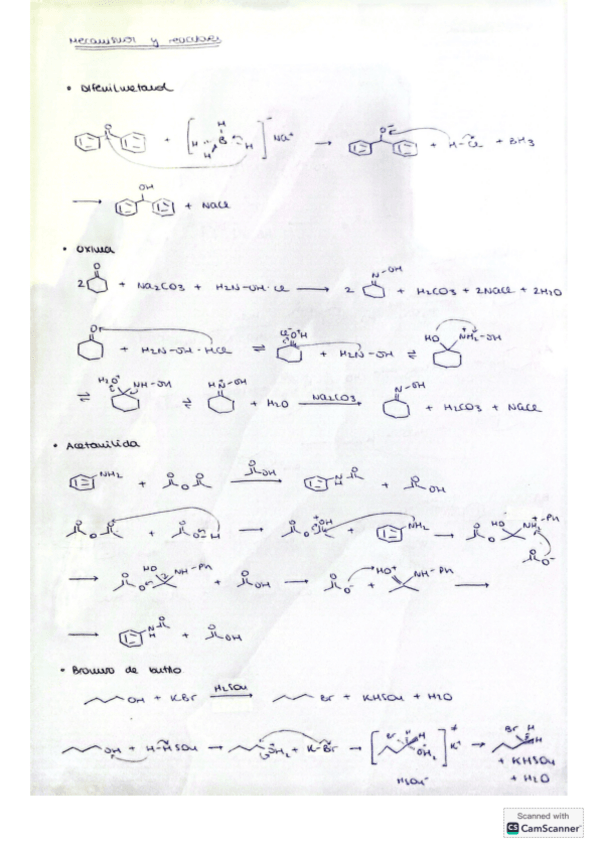 Mecanismos y reacciones
• Difenilmetanol
O + [H B H H H]⁻ Na⁺ → O⁻ + H-Cl + BH3
→ OH + NaCl
• Oxima
2 O + Na2CO3 + H2N-OH·Cl → 2 N-OH + H2CO3 + 2NaCl + 2H2O
O + H2N-OH·HCl ⇌ Cl⁻ O⁺H + H2N-OH ⇌ HO NH2-OH
⇌ H2O⁺ NH-OH ⇌ HN-OH + H2O Na2CO3 → N-OH + H2CO3 + NaCl
• Acetanilida
NH2 + O O O → O OH N H O + O OH
O O O + O O-H → O O OH + NH2 → O O HO NH2-Ph O O⁻
→ O O HO NH-Ph + O OH → O O⁻ + HO⁺ NH-Ph →
→ N H O + O OH
• Bromuro de butilo
OH + KBr H2SO4 → Br + KHSO4 + H2O
OH + H-HSO4 → OH2 + K-Br → [Br H H OH2]‡ K⁺ HSO4⁻ → Br H H + KHSO4 + H2O
Scanned with
CS CamScanner